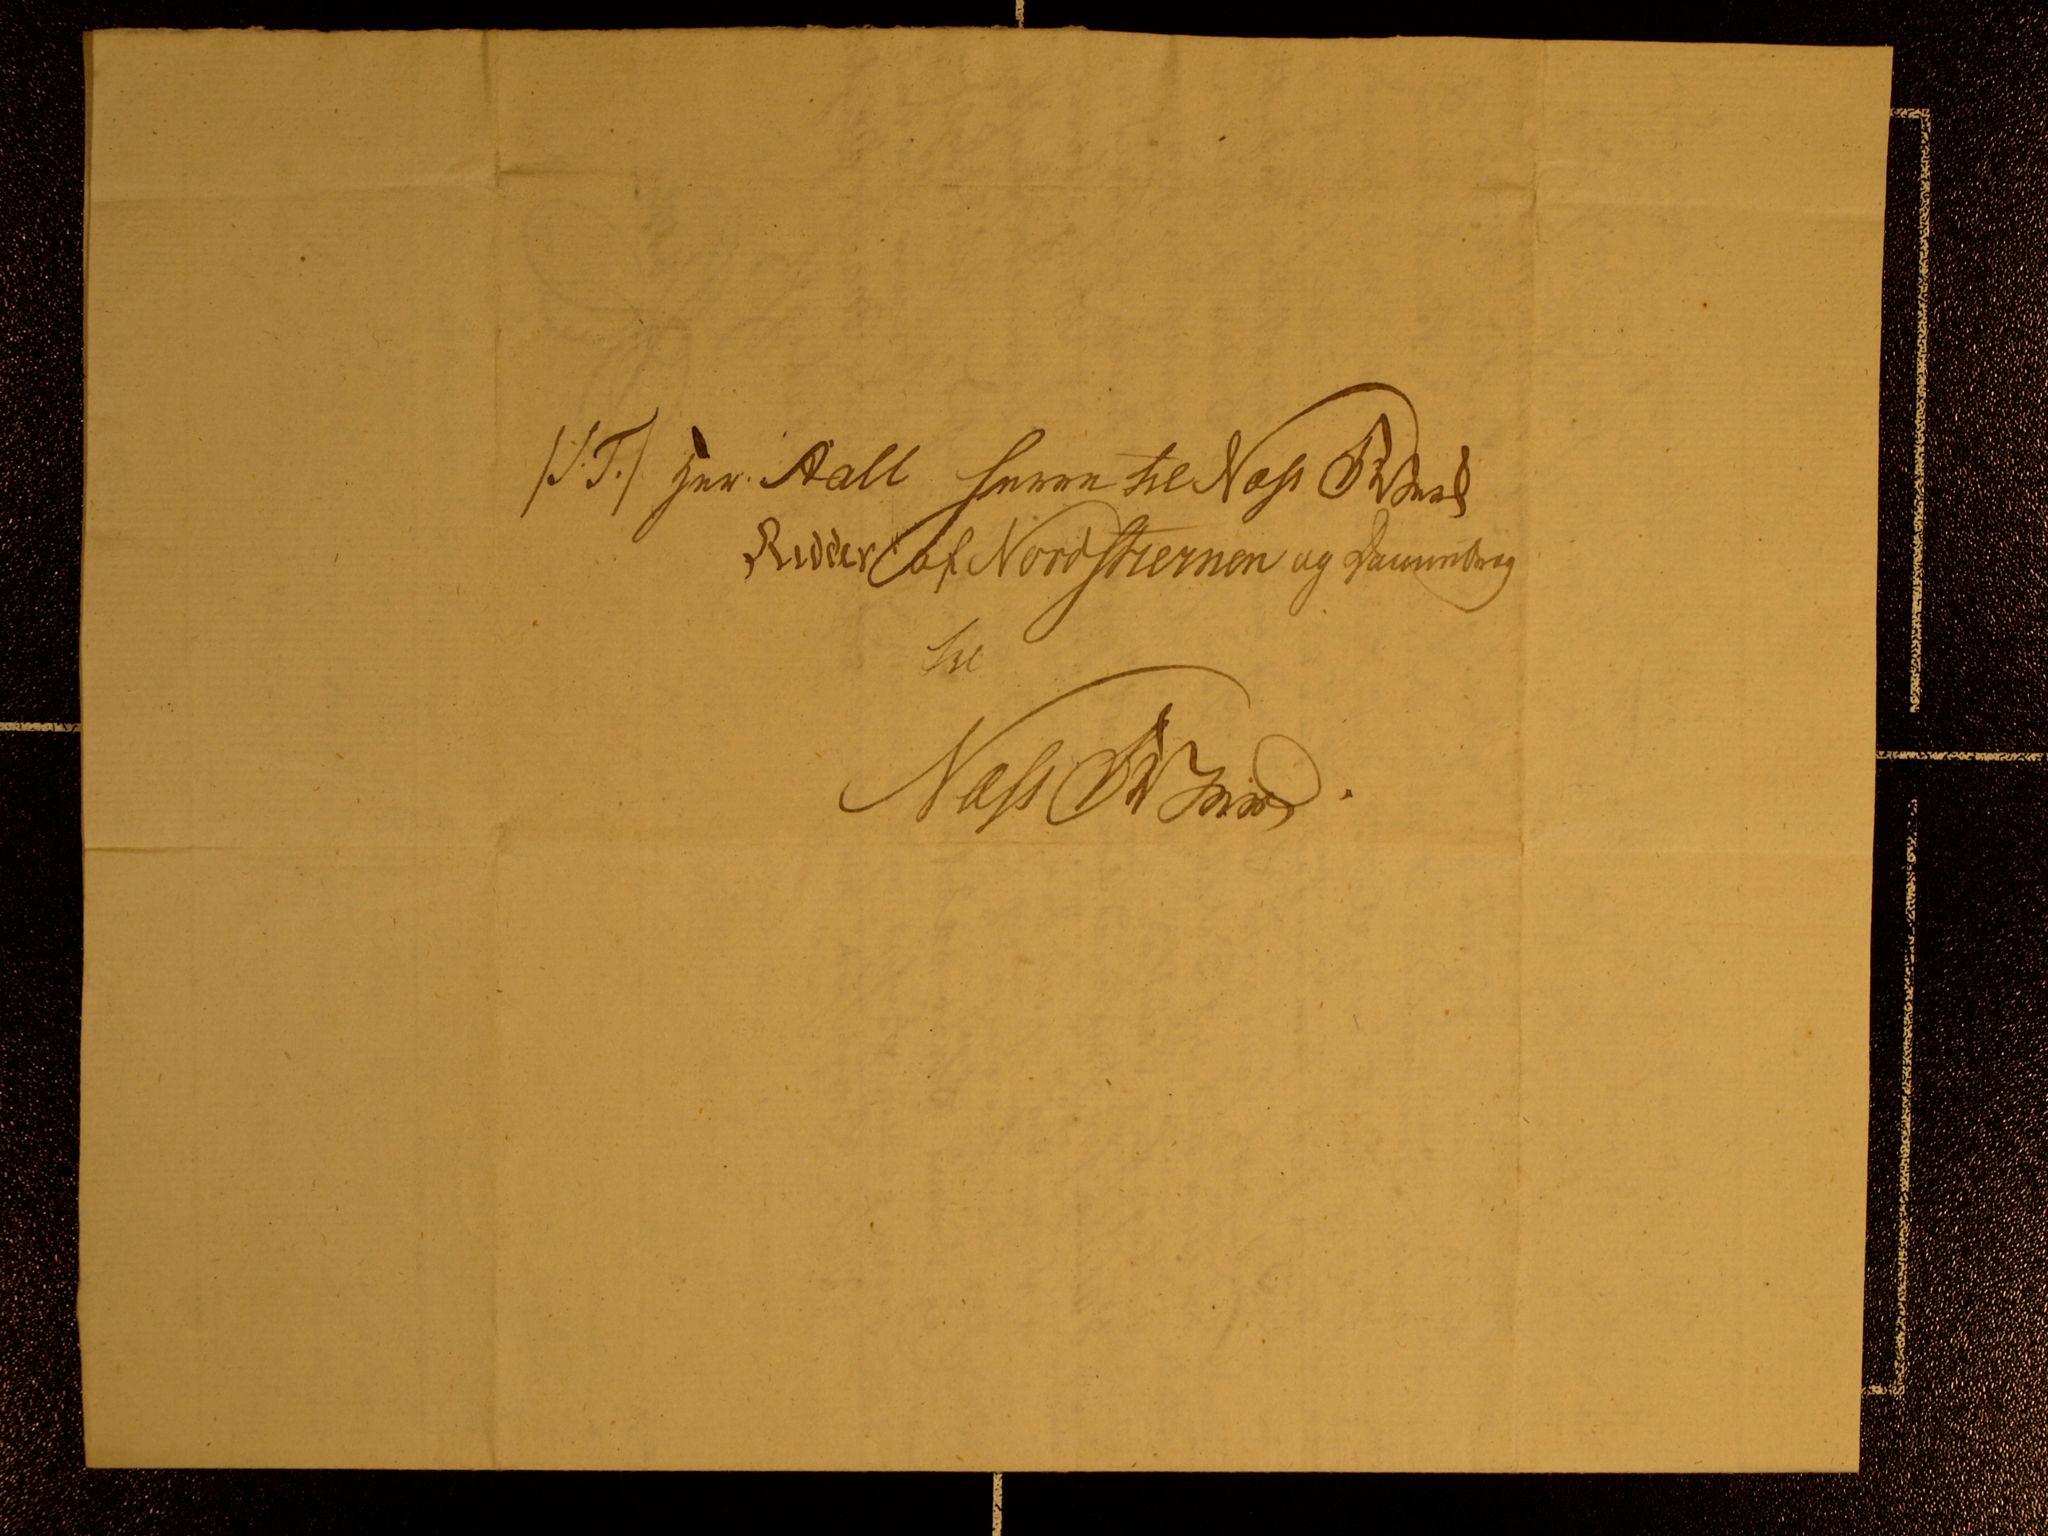 /S.T./ Herr. Aall Herre til Næss Værk
Ridder af Nordstiernen og Dannebrog
til
Næss Værk.